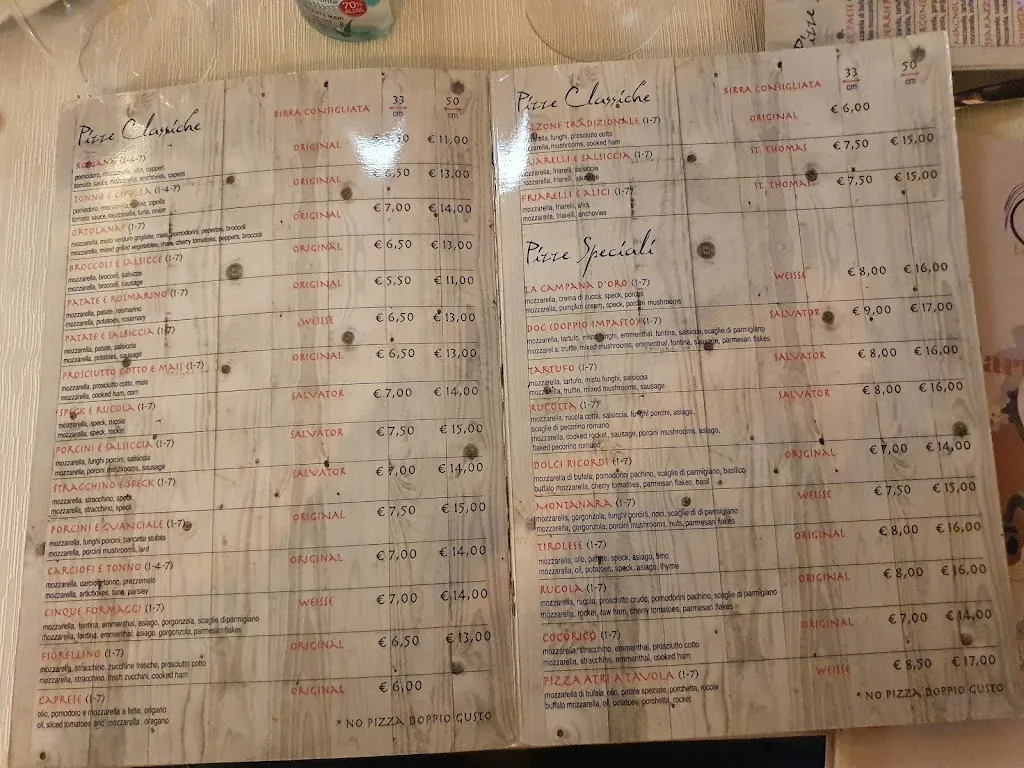 70%
ALCOL
Pizze Classiche
BIRRA CONSIGLIATA
33
cm
50
cm
ROMANA (1-4-7)
ORIGINAL
€ 11,00
pomodoro, mozzarella, alici, capperi
tomato sauce, mozzarella, anchovies, capers
TONNO E CIPOLLA (1-4-7)
ORIGINAL
€ 6,50
€ 13,00
pomodoro, mozzarella, tonno, cipolla
tomato sauce, mozzarella, tuna, onion
ORTOLANA* (1-7)
ORIGINAL
€ 7,00
€ 14,00
mozzarella, misto verdure grigliate, mais, pomodorini, peperoni, broccoli
mozzarella, mixed grilled vegetables, mais, cherry tomatoes, peppers, broccoli
BROCCOLI E SALSICCE (1-7)
ORIGINAL
€ 6,50
€ 13,00
mozzarella, broccoli, salsicce
mozzarella, broccoli, sausage
PATATE E ROSMARINO (1-7)
ORIGINAL
€ 5,50
€ 11,00
mozzarella, patate, rosmarino
mozzarella, potatoes, rosemary
PATATE E SALSICCIA (1-7)
WEISSE
€ 6,50
€ 13,00
mozzarella, patate, salsiccia
mozzarella, potatoes, sausage
PROSCIUTTO COTTO E MAIS (1-7)
ORIGINAL
€ 6,50
€ 13,00
mozzarella, prosciutto cotto, mais
mozzarella, cooked ham, corn
SPECK E RUCOLA (1-7)
SALVATOR
€ 7,00
€ 14,00
mozzarella, speck, rucola
mozzarella, speck, rocket
PORCINI E SALSICCIA (1-7)
SALVATOR
€ 7,50
€ 15,00
mozzarella, funghi porcini, salsiccia
mozzarella, porcini mushrooms, sausage
STRACCHINO E SPECK (1-7)
SALVATOR
€ 7,00
€ 14,00
mozzarella, stracchino, speck
mozzarella, stracchino, speck
PORCINI E GUANCIALE (1-7)
ORIGINAL
€ 7,50
€ 15,00
mozzarella, funghi porcini, pancetta stufata
mozzarella, porcini mushrooms, lard
CARCIOFI E TONNO (1-4-7)
ORIGINAL
€ 7,00
€ 14,00
mozzarella, carciofi, tonno, prezzemolo
mozzarella, artichokes, tuna, parsley
CINQUE FORMAGGI (1-7)
WEISSE
€ 7,00
€ 14,00
mozzarella, fontina, emmenthal, asiago, gorgonzola, scaglie di parmigiano
mozzarella, fontina, emmenthal, asiago, gorgonzola, parmesan flakes
FIORELLINO (1-7)
ORIGINAL
€ 6,50
€ 13,00
mozzarella, stracchino, zucchine fresche, prosciutto cotto
mozzarella, stracchino, fresh zucchini, cooked ham
CAPRESE (1-7)
ORIGINAL
€ 6,00
olio, pomodoro e mozzarella a fette, origano
oil, sliced tomatoes and mozzarella, oregano
* NO PIZZA DOPPIO GUSTO
Pizze Classiche
BIRRA CONSIGLIATA
33
cm
50
cm
CALZONE TRADIZIONALE (1-7)
ORIGINAL
€ 6,00
mozzarella, funghi, prosciutto cotto
mozzarella, mushrooms, cooked ham
FRIARELLI E SALSICCIA (1-7)
ST. THOMAS
€ 7,50
€ 15,00
mozzarella, friarelli, salsiccia
mozzarella, friarelli, sausage
FRIARELLI E ALICI (1-7)
ST. THOMAS
€ 7,50
€ 15,00
mozzarella, friarelli, alici
mozzarella, friarelli, anchovies
Pizze Speciali
LA CAMPANA D'ORO (1-7)
WEISSE
€ 8,00
€ 16,00
mozzarella, crema di zucca, speck, porcini
mozzarella, pumpkin cream, speck, porcini mushrooms
DOC (DOPPIO IMPASTO) (1-7)
SALVATOR
€ 9,00
€ 17,00
mozzarella, tartufo, misto funghi, emmenthal, fontina, salsicce, scaglie di parmigiano
mozzarella, truffle, mixed mushrooms, emmenthal, fontina, sausage, parmesan flakes
TARTUFO (1-7)
SALVATOR
€ 8,00
€ 16,00
mozzarella, tartufo, misto funghi, salsiccia
mozzarella, truffle, mixed mushrooms, sausage
RUCOTTA (1-7)
SALVATOR
€ 8,00
€ 16,00
mozzarella, rucola cotta, salsiccia, funghi porcini, asiago,
scaglie di pecorino romano
mozzarella, cooked rocket, sausage, porcini mushrooms, asiago,
flaked pecorino romano
DOLCI RICORDI (1-7)
ORIGINAL
€ 7,00
€ 14,00
mozzarella di bufala, pomodorini pachino, scaglie di parmigiano, basilico
buffalo mozzarella, cherry tomatoes, parmesan flakes, basil
MONTANARA (1-7)
WEISSE
€ 7,50
€ 15,00
mozzarella, gorgonzola, funghi porcini, noci, scaglie di di parmigiano
mozzarella, gorgonzola, porcini mushrooms, nuts, parmesan flakes
TIROLESE (1-7)
ORIGINAL
€ 8,00
€ 16,00
mozzarella, olio, patate, speck, asiago, timo
mozzarella, oil, potatoes, speck, asiago, thyme
RUCOLA (1-7)
ORIGINAL
€ 8,00
€ 16,00
mozzarella, rucola, prosciutto crudo, pomodorini pachino, scaglie di parmigiano
mozzarella, rocket, raw ham, cherry tomatoes, parmesan flakes
COCORICÒ (1-7)
ORIGINAL
€ 7,00
€ 14,00
mozzarella, stracchino, emmenthal, prosciutto cotto
mozzarella, stracchino, emmenthal, cooked ham
PIZZA ATRI A TAVOLA (1-7)
WEISSE
€ 8,50
€ 17,00
mozzarella di bufala, olio, patate speziate, porchetta, rucola
buffalo mozzarella, oil, potatoes, porchetta, rocket
* NO PIZZA DOPPIO GUSTO